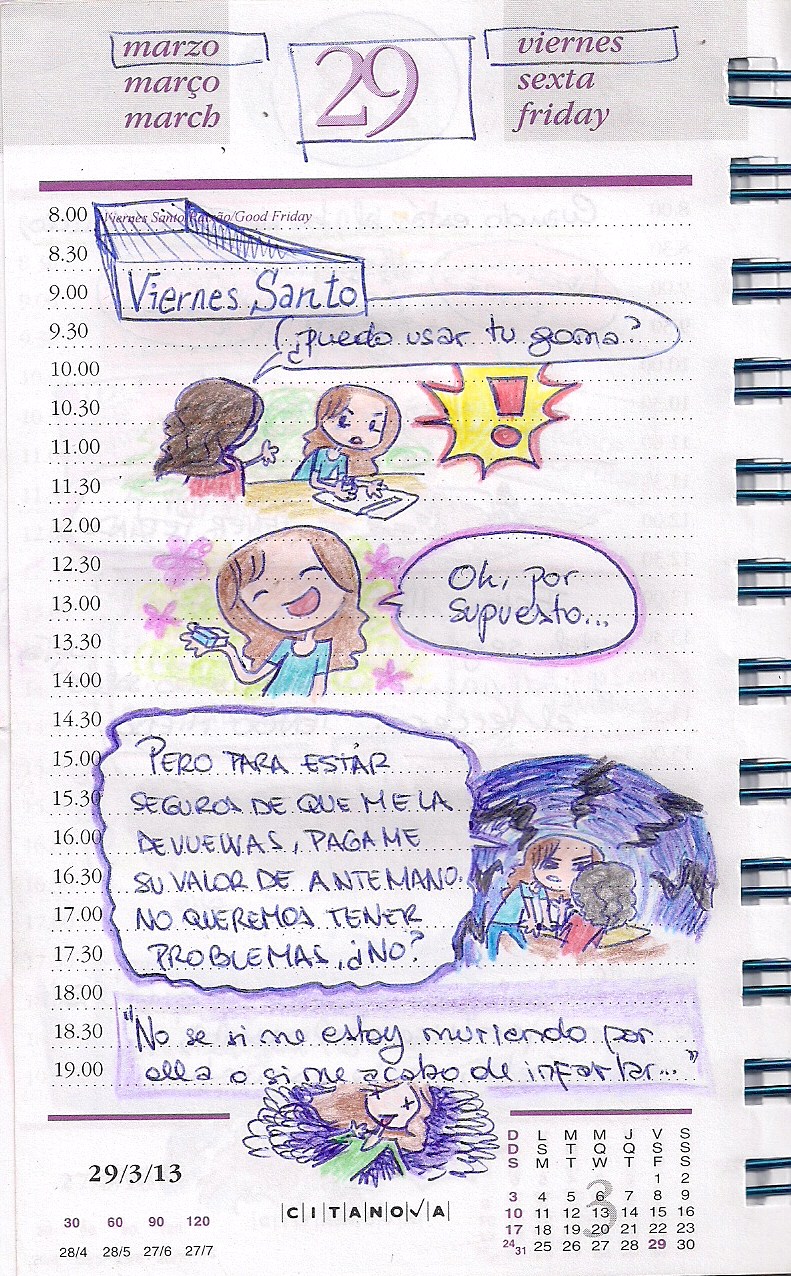 marzo
março
march
29
viernes
sexta
friday
8.00 Viernes Santo/Paixão/Good Friday
8.30
9.00 Viernes Santo
9.30 ¿puedo usar tu goma?
10.00
10.30 !
11.00
11.30
12.00
12.30 Oh, por
13.00 supuesto...
13.30
14.00
14.30
15.00 PERO PARA ESTÁR
15.30 SEGUROS DE QUE ME LA
16.00 DEVUELVAS, PAGAME
16.30 SU VALOR DE ANTEMANO.
17.00 NO QUEREMOS TENER
17.30 PROBLEMAS, ¿NO?
18.00
18.30 "No se si me estoy muriendo por
19.00 ella o si me acabo de infartar..."
29/3/13
30 60 90 120
28/4 28/5 27/6 27/7
CITANOVA
3
D L M M J V S
D S T Q Q S S
S M T W T F S
1 2
3 4 5 6 7 8 9
10 11 12 13 14 15 16
17 18 19 20 21 22 23
24 31 25 26 27 28 29 30